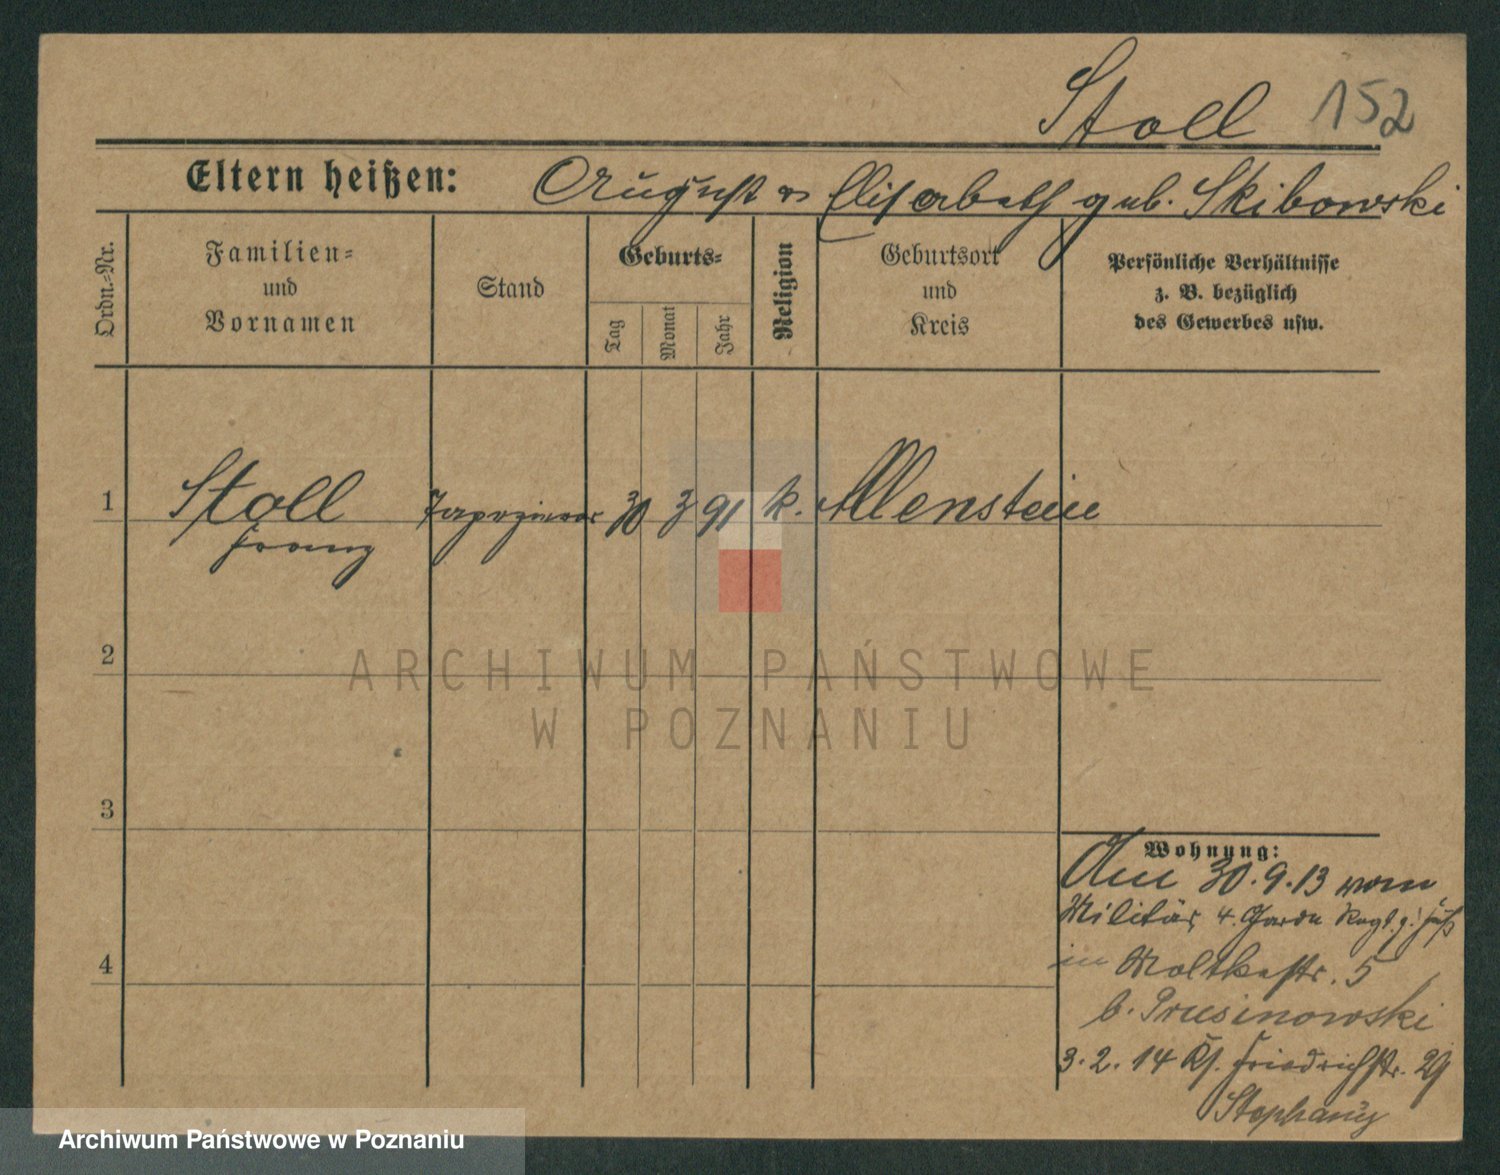 Stoll 152
Eltern heißen: August u Elisabeth geb. Skibowski
Ordn.-Nr.
Familien-
und
Vornamen
Stand
Geburts-
Tag
Monat
Jahr
Religion
Geburtsort
und
Kreis
Persönliche Verhältnisse
z. B. bezüglich
des Gewerbes usw.
1 Stoll Tapezierer 30 3 91 k. Allenstein
Franz
2
3
4
ARCHIWUM PAŃSTWOWE
W POZNANIU
Wohnung:
Am 30.9.13 vom
Militär, 4. Garde Regt. z. Fuß
in Moltkestr. 5
b. Prusinowski
3.2.14 Ks. Friedrichstr. 29
Stephany
Archiwum Państwowe w Poznaniu